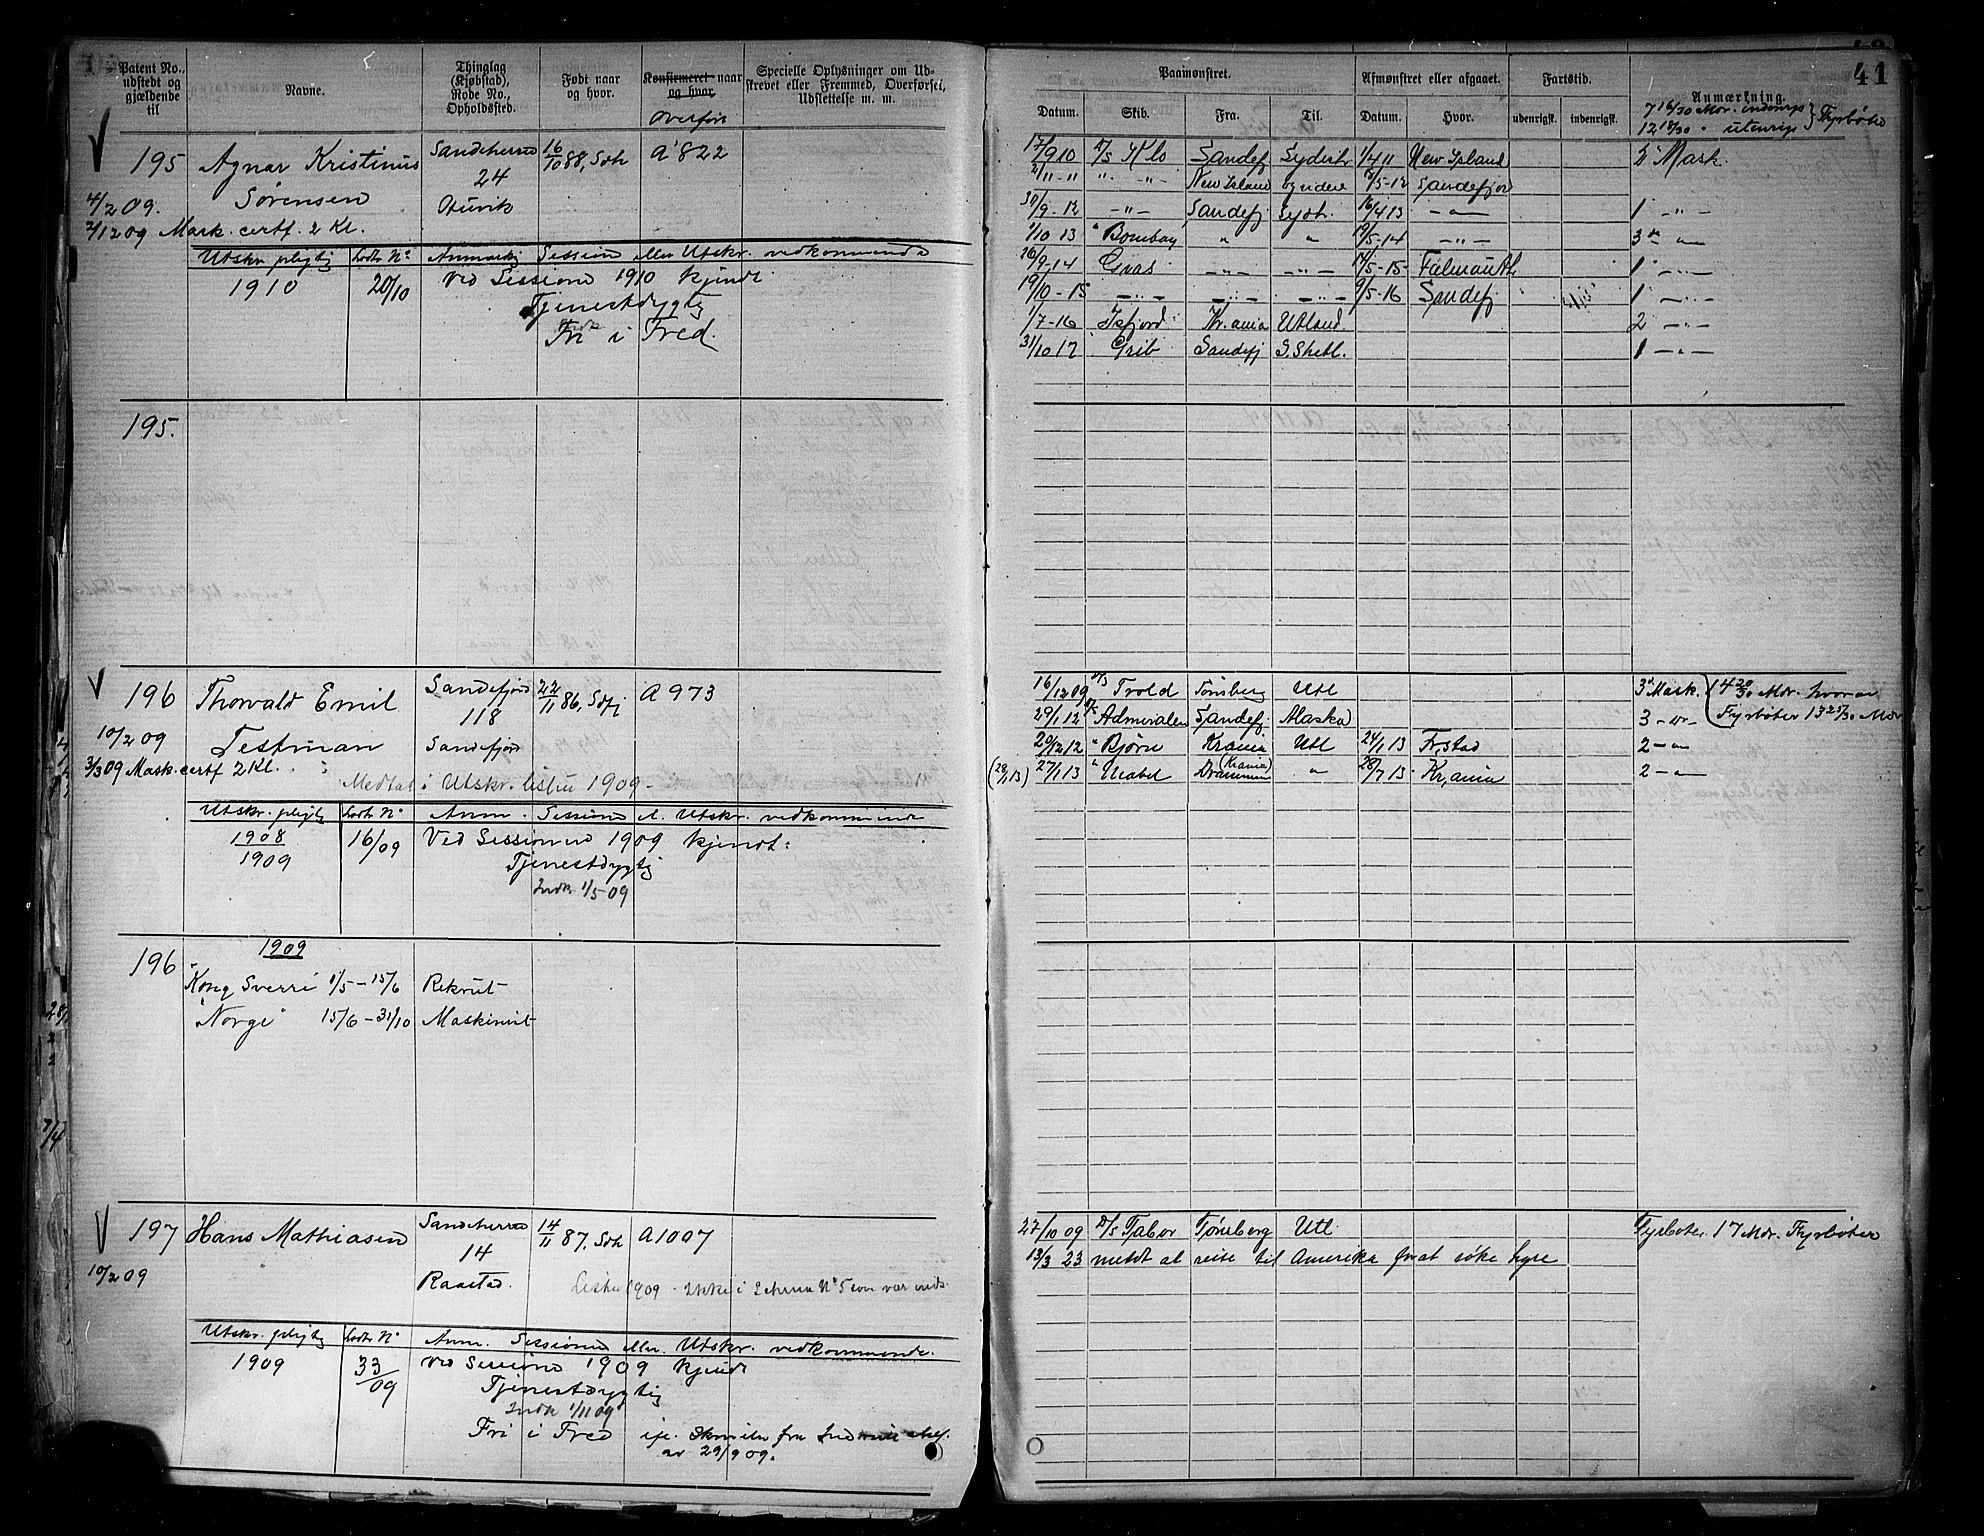 41
Patent No., udstedt og gjældende til
Navne.
Thinglag (Kjøbstad), Rode No., Opholdssted.
Født naar og hvor.
Konfirmeret naar og hvor.
overført
Specielle Oplysninger om Udstrevet eller Fremmed, Overførsel, Udslettelse m. m.
Paamønstret.
Afmønstret eller afgaaet.
Fartstid.
Anmærkning.
Datum. Skib. Fra. Til. Datum. Hvor. udenrigsk. indenrigsk.
7 16/30 Mdr. indenrigs
12 18/30 " utenrigs } Fyrbøter
195 Agnar Kristinus Sørensen
Sandeherred
24
16/10 88, Sdh
A 822
4/2 09.
2/12 09 Mask. certf. 2 Kl.
Utskr. pligtig Lodtr. No Anmærkn. Sessione eller Utskr. vedkommende
1910 20/10 Ved Sessione 1910 kjendt
Tjenestdygtig
Fri i Fred.
17/9 10 D/S Oslo Sandefj Sydishv 1/4 11 New Island 2' Mask.
2/11 - 11 " - " - New Island 5-12 Sandefjord
30/9 - 12 - " - Sandefj Sydh. 16/4 13 - " - 1 - " -
1/10 13 " Bombay " " 19/5-14 - " - 3 " - " -
26/9-14 Gras - " - - " - 14/5-15 - Falmouth 1 - " -
19/10 - 15 - " - - " - - " - 9/5-16 Sandefj 1 - " -
1/7-16 Isfjord Kr.ania Utland. 2 - " -
31/10 17 " Grib Sandefj S. Shetl. 1 - " -
195.
196 Thorvald Emil Testman
Sandefjord
118
Sandefjord
22/11 86, Sdfj
A 973
10/2 09
3/3 09 Mask. certf 2 Kl.
Medtat i Utskr. listen 1909 -
Utskr. pligtig Lodtr. No Anm. Sessione el. Utskr. vedkommende
1908
1909
16/09 Ved Sessionen 1909 kjendt:
Tjenestdygtig
Indk. 1/5-09
16/12 09 D/S Trold Tønsberg Utl 3' Mask. 14 20/30 Mdr. hvorav
29/1 12 Admiralen Sandefj. Alaska 3 - " - Fyrbøter 13 25/30 Mdr
20/12 12 " Bjørn Kr.ania Utl 24/1 13 Fr.stad 2 - " -
(29/1 13) 27/1 13 " Drammen (Kr.ania) " 28/7 13 Kr.ania 2 - " -
196
1909
"Kong Sverre" 1/5 - 15/6 Rekrut
"Norge" 15/6 - 31/10 Maskinist
197 Hans Mathiasen
Sandeherred
14
Raastad.
14/11 87, Sdh
A 1007
10/2 09
Listen 1909 - Ikke i Schema No 5 som vær. meds.
Utskr. pligtig Lodtr. No Anm. Sessione eller Utskr. vedkommende.
1909 33/09 Ved Sessione 1909 kjendt
Tjenestdygtig
Indk 1/11 09
Fri i Fred
av 29/9 09.
27/10 09 D/S Tabor Tønsberg Utl Fyrbøter. 17 Mdr. Fyrbøter
13/3 23 meldt at reise til Amerika for at søke hyre